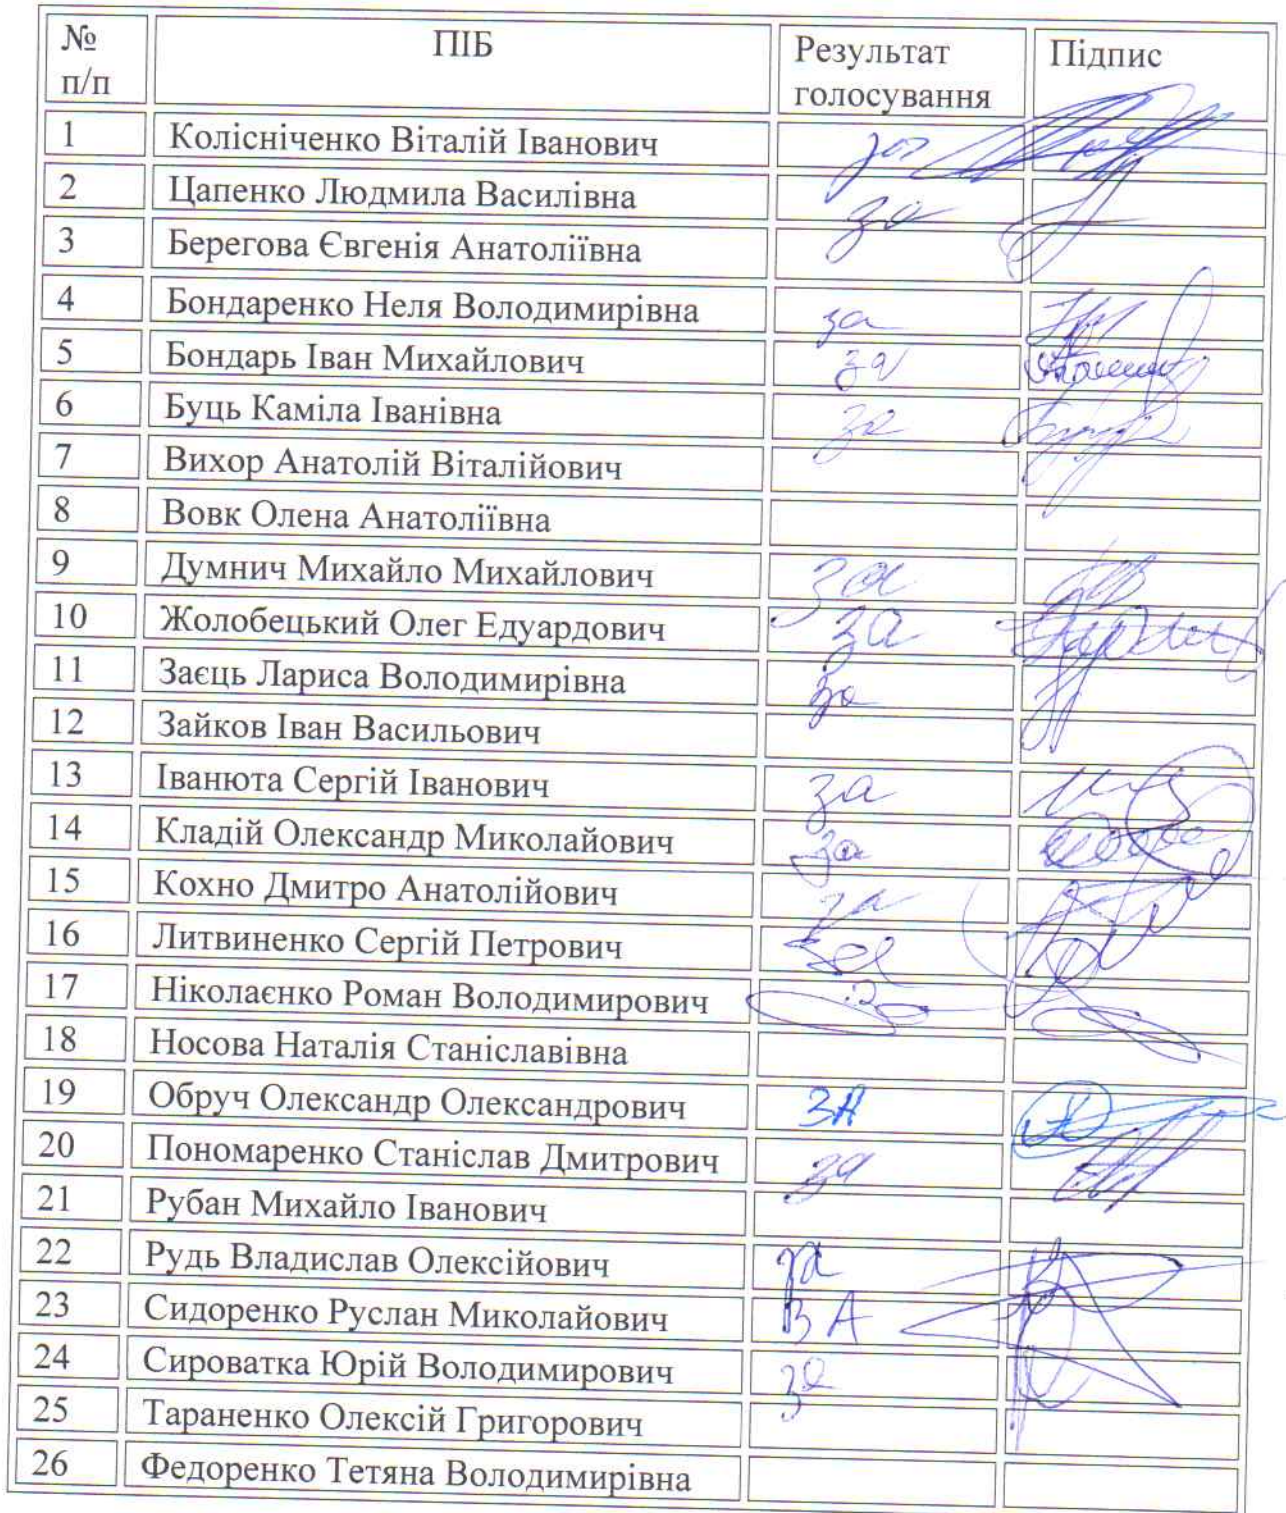 № п/п ПІБ Результат голосування Підпис
1 Колісніченко Віталій Іванович за
2 Цапенко Людмила Василівна за
3 Берегова Євгенія Анатоліївна
4 Бондаренко Неля Володимирівна за
5 Бондарь Іван Михайлович за
6 Буць Каміла Іванівна за
7 Вихор Анатолій Віталійович
8 Вовк Олена Анатоліївна
9 Думнич Михайло Михайлович за
10 Жолобецький Олег Едуардович за
11 Заєць Лариса Володимирівна за
12 Зайков Іван Васильович
13 Іванюта Сергій Іванович за
14 Кладій Олександр Миколайович за
15 Кохно Дмитро Анатолійович за
16 Литвиненко Сергій Петрович за
17 Ніколаєнко Роман Володимирович за
18 Носова Наталія Станіславівна
19 Обруч Олександр Олександрович ЗА
20 Пономаренко Станіслав Дмитрович за
21 Рубан Михайло Іванович
22 Рудь Владислав Олексійович за
23 Сидоренко Руслан Миколайович ЗА
24 Сироватка Юрій Володимирович за
25 Тараненко Олексій Григорович
26 Федоренко Тетяна Володимирівна